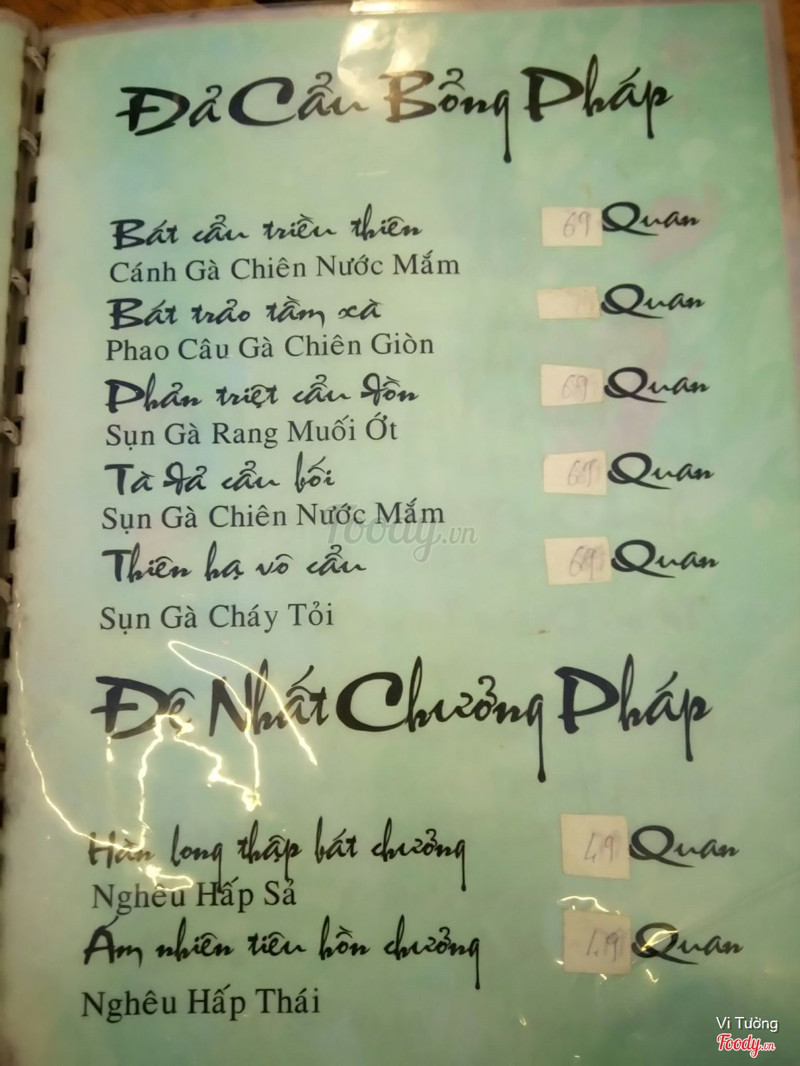 Đả Cẩu Bổng Pháp
Bát cẩu triều thiên 69 Quan
Cánh Gà Chiên Nước Mắm
Bát trảo tầm xà Quan
Phao Câu Gà Chiên Giòn
Phản triệt cẩu đồn 69 Quan
Sụn Gà Rang Muối Ớt
Tà đả cẩu bối 69 Quan
Sụn Gà Chiên Nước Mắm
Thiên hạ vô cẩu 69 Quan
Sụn Gà Cháy Tỏi
Đệ Nhất Chưởng Pháp
Hàn long thập bát chưởng 49 Quan
Nghêu Hấp Sả
Ám nhiên tiêu hồn chưởng Quan
Nghêu Hấp Thái
Foody.vn
Vi Tường
Foody.vn